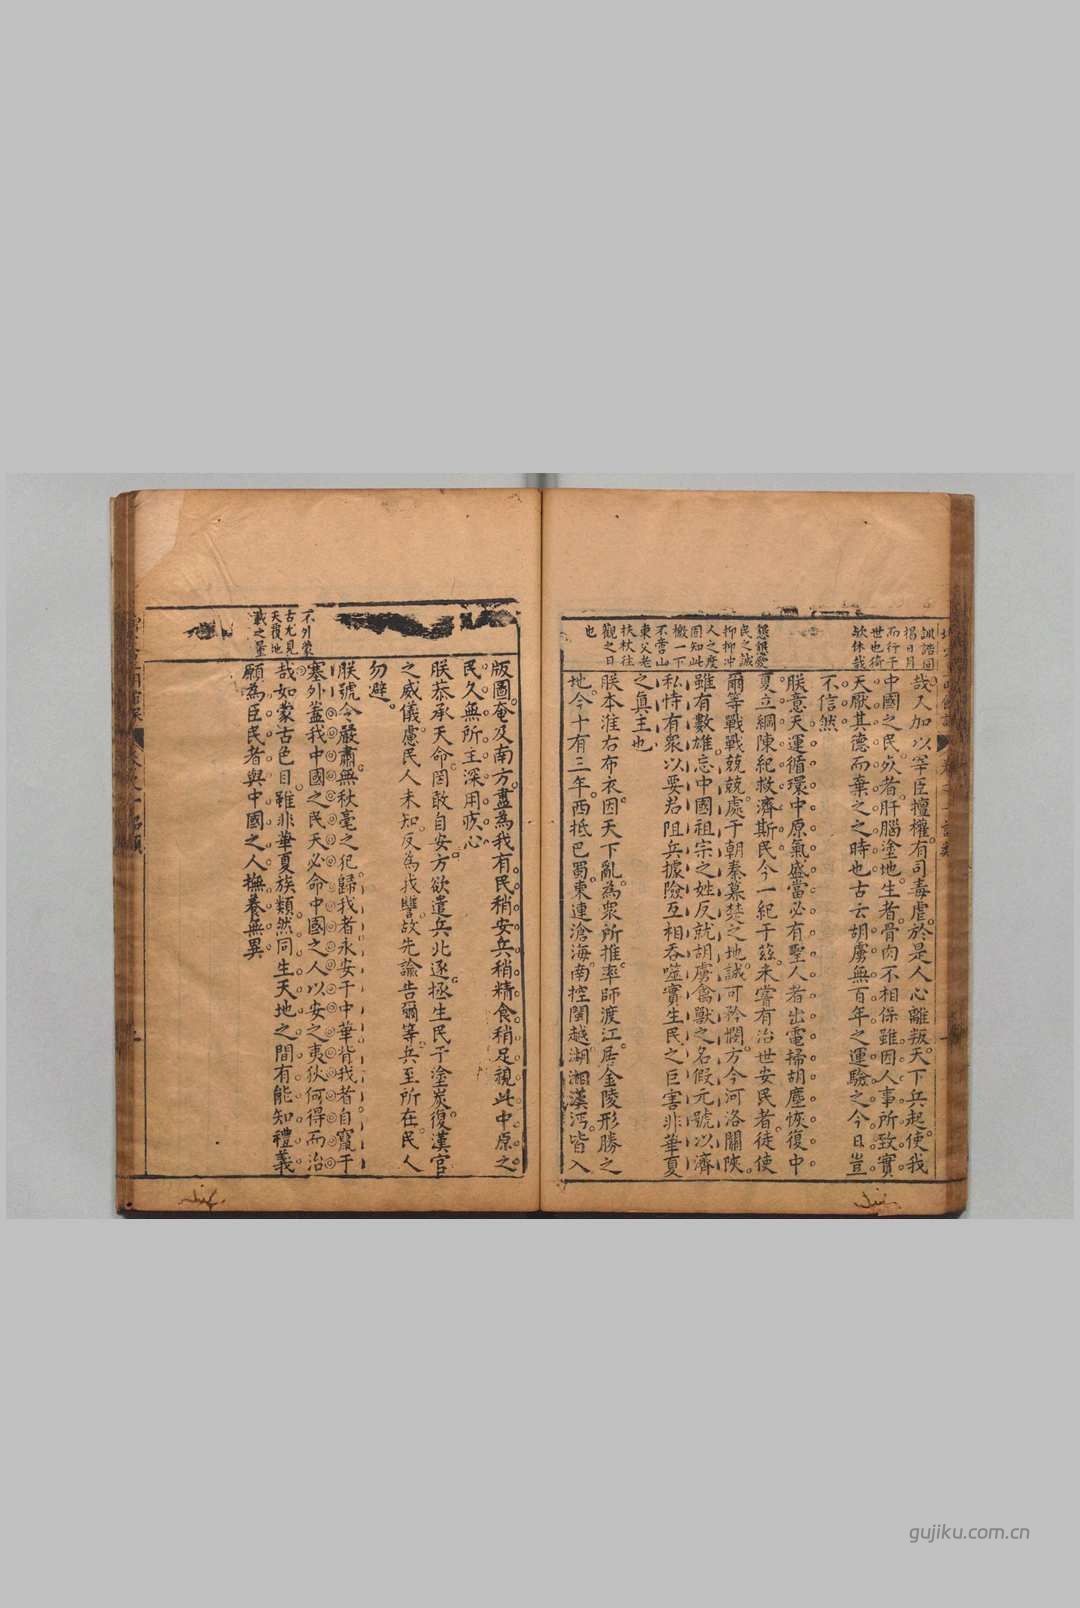 訓誥回
褐日月
而行于
世也猗
欤休哉
哉又加以宰臣擅權有司毒虐於是人心離叛天下兵起使我
中國之民亥者肝腦塗地生者骨肉不相保雖因人事所致實
天厭其德而棄之之時也古云胡虜無百年之運驗之今日豈
不信然
朕意天運循環中原氣盛當必有聖人者出電掃胡塵恢復中
夏立綱陳紀救濟斯民今一紀于兹未嘗有治世安民者徒使
爾等戰戰兢兢處于朝秦暮楚之地誠可矜憫方今河洛關陝
雖有數雄忘中國祖宗之姓反就胡虜禽獸之名假元號以濟
私恃有衆以要君阻兵據險互相吞噬實生民之巨害非華夏
之真主也
民之誠
抑抑冲
人之度
固知此
檄一下
不啻山
東父老
扶杖往
觀之日
也
朕本淮右布衣因天下亂為衆所推率師渡江居金陵形勝之
地今十有三年西抵巴蜀東連滄海南控閩越湖湘漢沔皆入
版圖奄及南方盡為我有民稍安兵稍精食稍足視此中原之
民久無所主深用疚心
朕恭承天命罔敢自安方欲遣兵北逐拯生民于塗炭復漢官
之威儀慮民人未知反為我讐故先諭告爾等兵至所在民人
勿避
朕號令嚴肅無秋毫之犯歸我者永安于中華背我者自竄于
塞外盖我中國之民天必命中國之人以安之夷狄何得而治
哉如蒙古色目雖非華夏族類然同生天地之間有能知禮義
願為臣民者與中國之人撫養無異
不外蒙
古尤見
天覆地
載之量
gujiku.com.cn